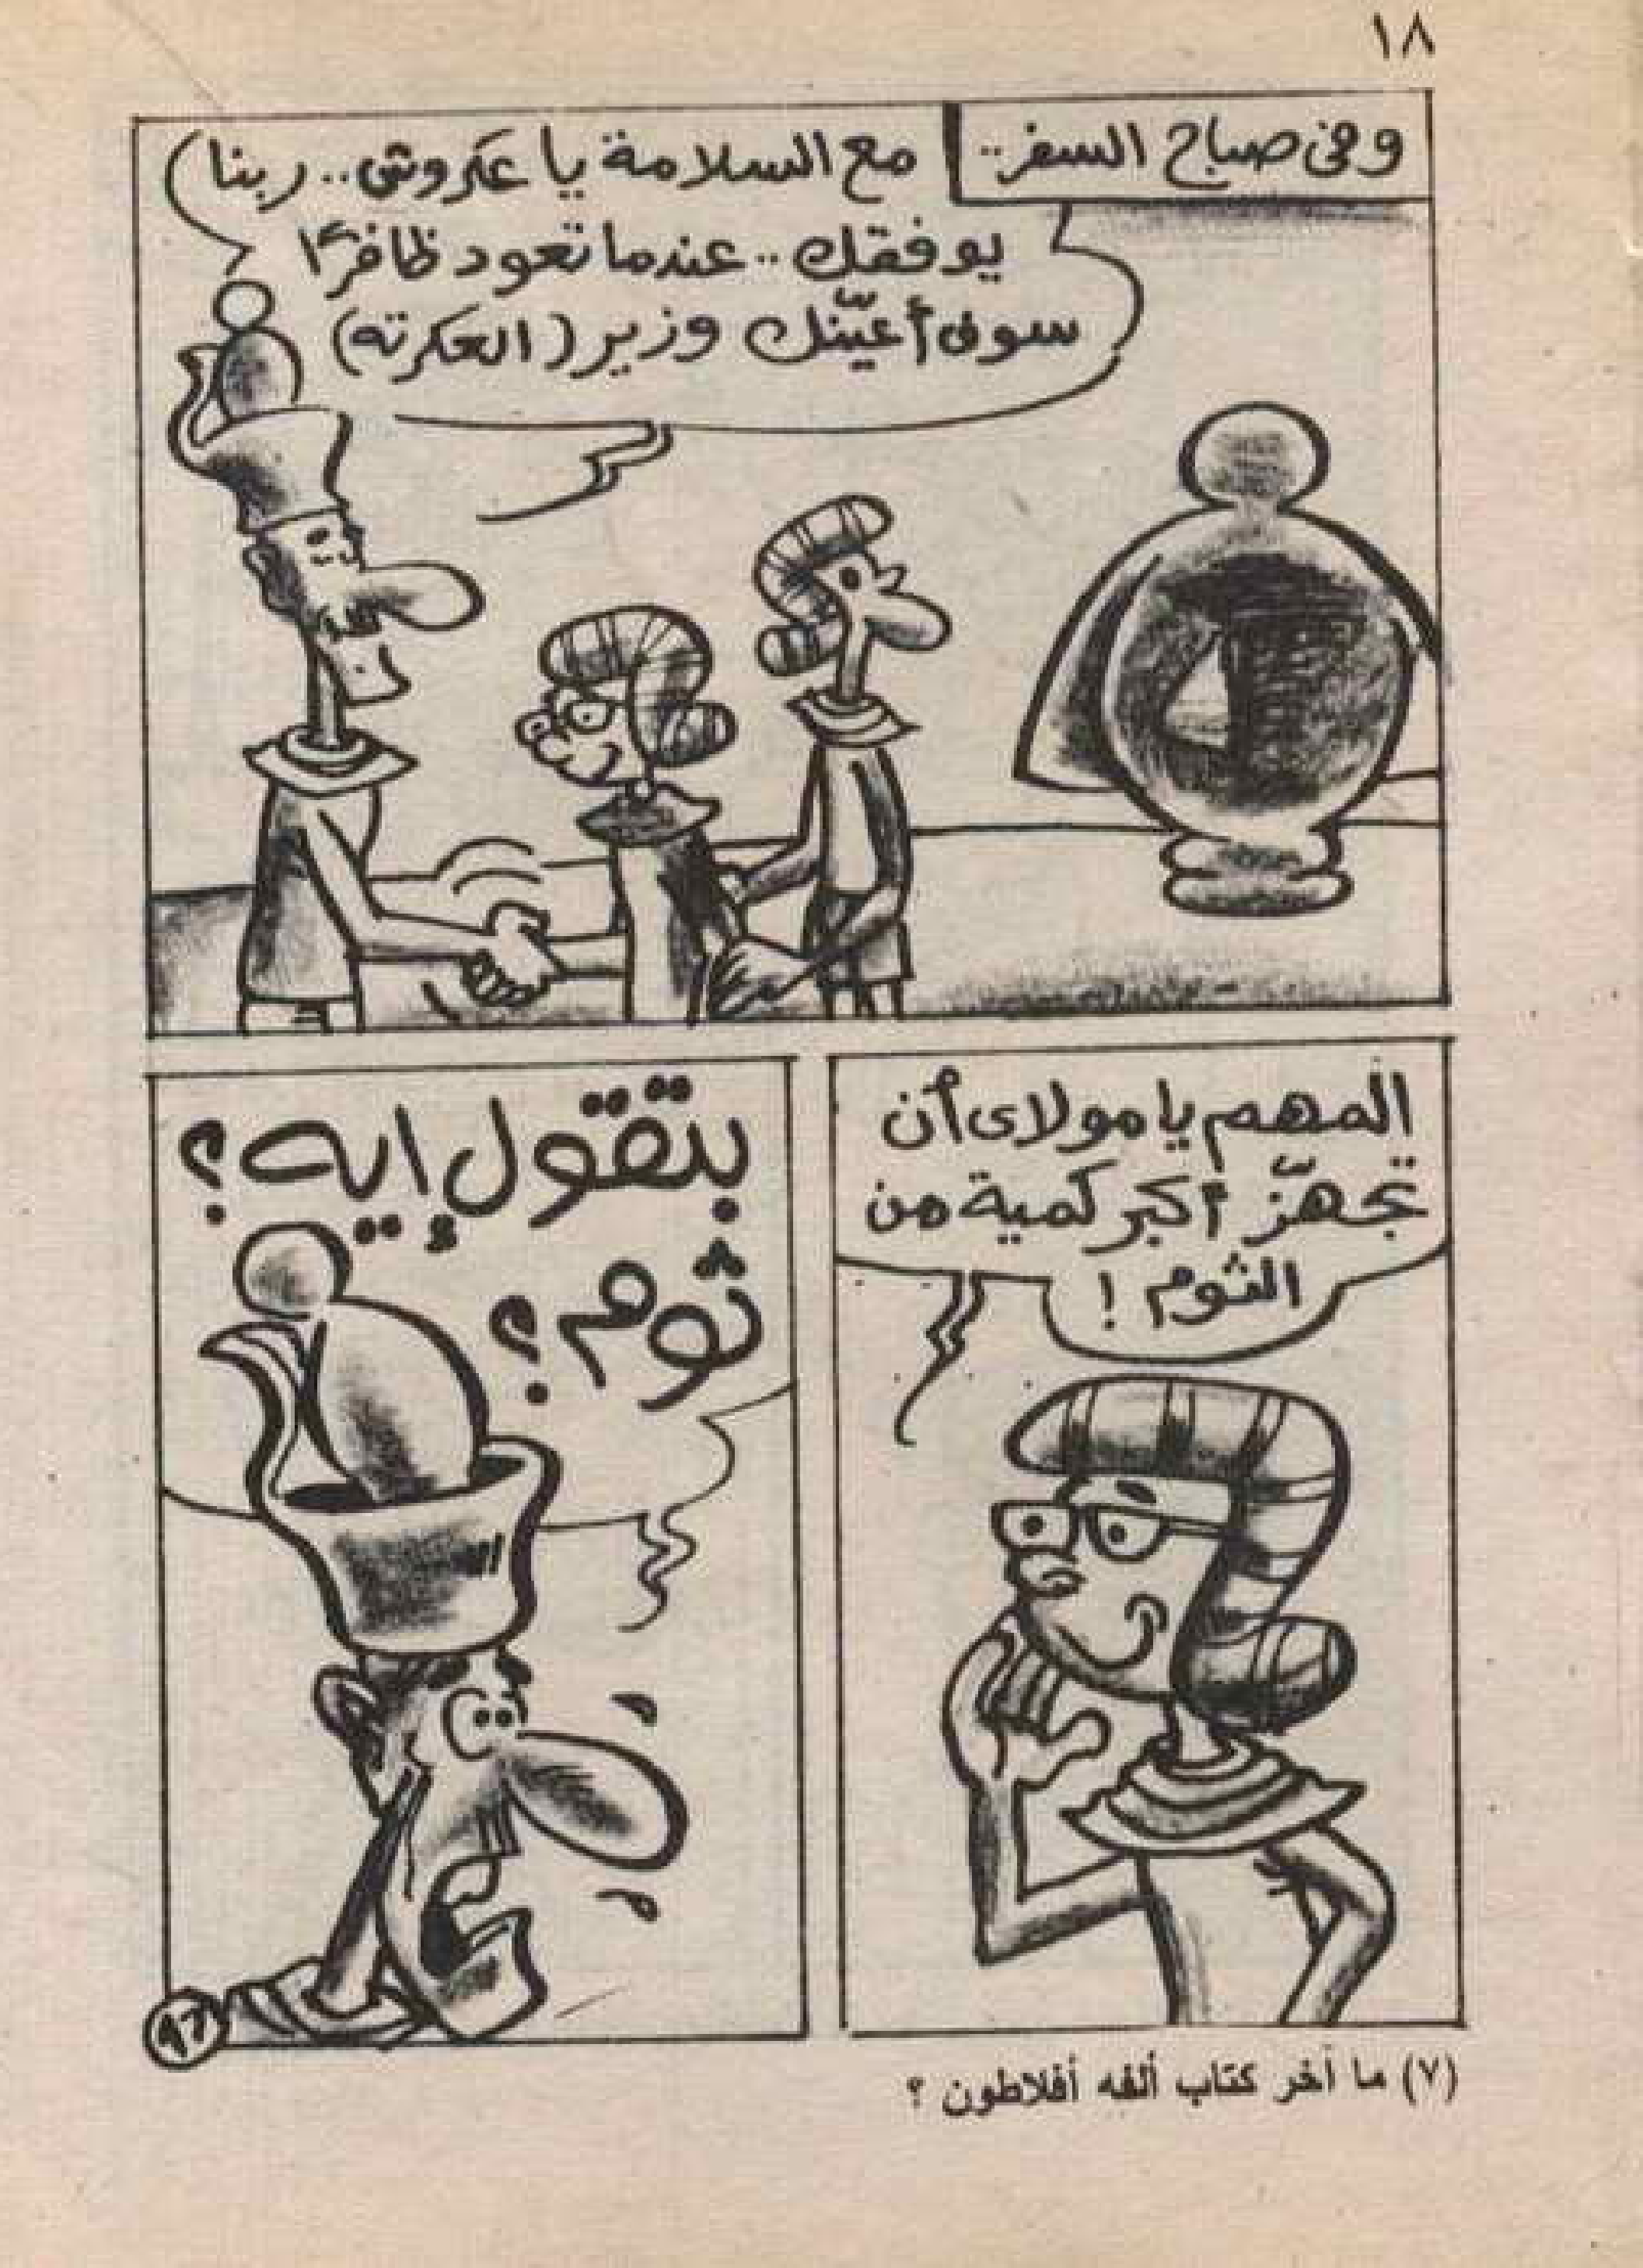 ١٨
وفى صباح السفر..
مع السلامة يا عكروش.. ربنا
يوفقك.. عندما تعود ظافرًا
سوف أعيّنك وزير (العكرته)
المهم يا مولاى أن
تجهّز أكبر كمية من
الثوم !
بتقول إيه؟
ثوم؟
(٧) ما آخر كتاب ألفه أفلاطون ؟